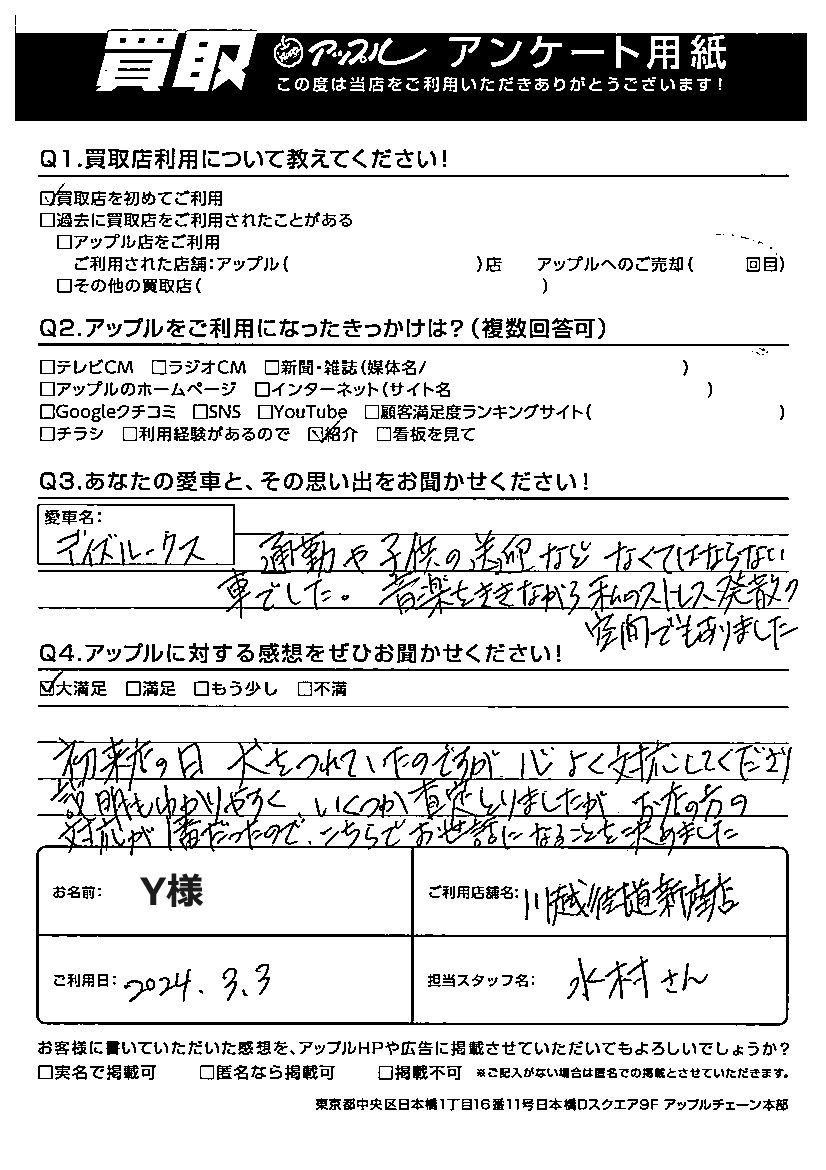 買取 アップル アンケート用紙
この度は当店をご利用いただきありがとうございます!
Q1.買取店利用について教えてください!
☑買取店を初めてご利用
□過去に買取店をご利用されたことがある
□アップル店をご利用
ご利用された店舗:アップル( )店 アップルへのご売却( 回目)
□その他の買取店( )
Q2.アップルをご利用になったきっかけは?(複数回答可)
□テレビCM □ラジオCM □新聞・雑誌(媒体名/ )
□アップルのホームページ □インターネット(サイト名 )
□Googleクチコミ □SNS □YouTube □顧客満足度ランキングサイト( )
□チラシ □利用経験があるので ☑紹介 □看板を見て
Q3.あなたの愛車と、その思い出をお聞かせください!
愛車名:
デイズルークス 通勤や子供の送迎など なくてはならない
車でした。 音楽をききながら 私のストレス発散の
空間でもありました
Q4.アップルに対する感想をぜひお聞かせください!
☑大満足 □満足 □もう少し □不満
初来店の日 犬をつれていたのですが 心よく対応してくださり
説明もわかりやすく、いくつか査定とりましたが お店の方の
対応が1番だったので、こちらでお世話になることを決めました
お名前: Y様 ご利用店舗名: 川越街道新座店
ご利用日: 2024.3.3 担当スタッフ名: 水村さん
お客様に書いていただいた感想を、アップルHPや広告に掲載させていただいてもよろしいでしょうか?
□実名で掲載可 □匿名なら掲載可 □掲載不可 ※ご記入がない場合は匿名での掲載とさせていただきます。
東京都中央区日本橋1丁目16番11号日本橋Dスクエア9F アップルチェーン本部